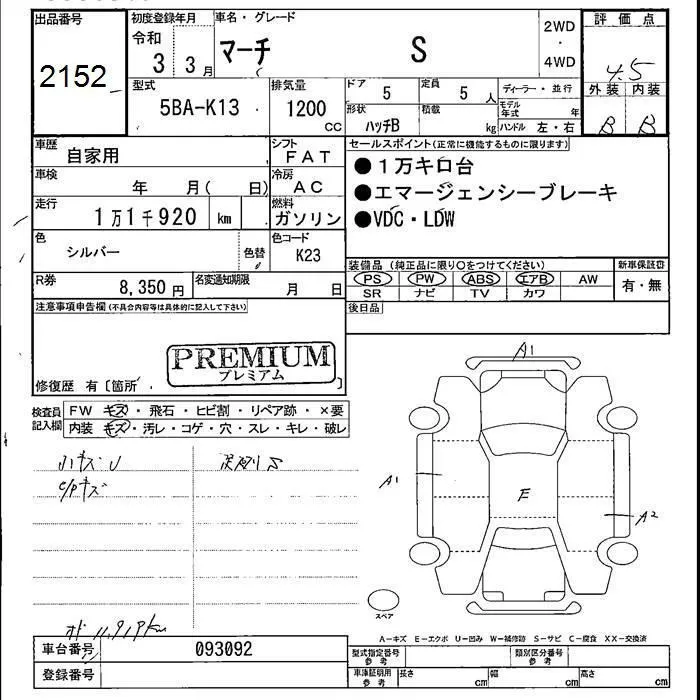 出品番号
2152
初度登録年月
令和
3 3月
車名・グレード
マーチ S
2WD
・
4WD
評価点
4.5
外装 内装
B B
型式
5BA-K13
排気量
1200
CC
ドア
5
定員
5 人
形状
ハッチB
積載
kg
ディーラー・並行
モデル年式 年
ハンドル 左・右
車歴 自家用
シフト
FAT
車検 年 月( 日)
冷房
AC
走行 1万1千920 km
燃料
ガソリン
色
シルバー
色替
色コード
K23
R券 8,350円
名変通知期限 月 日
セールスポイント(正常に機能するものに限ります)
●1万キロ台
●エマージェンシーブレーキ
●VDC・LDW
装備品 (純正品に限り○をつけてください)
PS PW ABS エアB AW
SR ナビ TV カワ
新車保証書
有・無
後日品
注意事項申告欄(不具合内容等は具体的に記入して下さい)
PREMIUM
プレミアム
修復歴 有〔箇所 〕
検査員
記入欄
FW キズ・飛石・ヒビ割・リペア跡・×要
内装 キズ・汚レ・コゲ・穴・スレ・キレ・破レ
小キズ U
C/Pキズ
S
A1
A1
E
A2
スペア
A-キズ E-エクボ U-凹み W-補修跡 S-サビ C-腐食 XX-交換済
オド 11,919km
車台番号 093092
登録番号
型式指定番号
参考
類別区分番号
参考
車庫証明用
参考
長さ cm 幅 cm 高さ cm